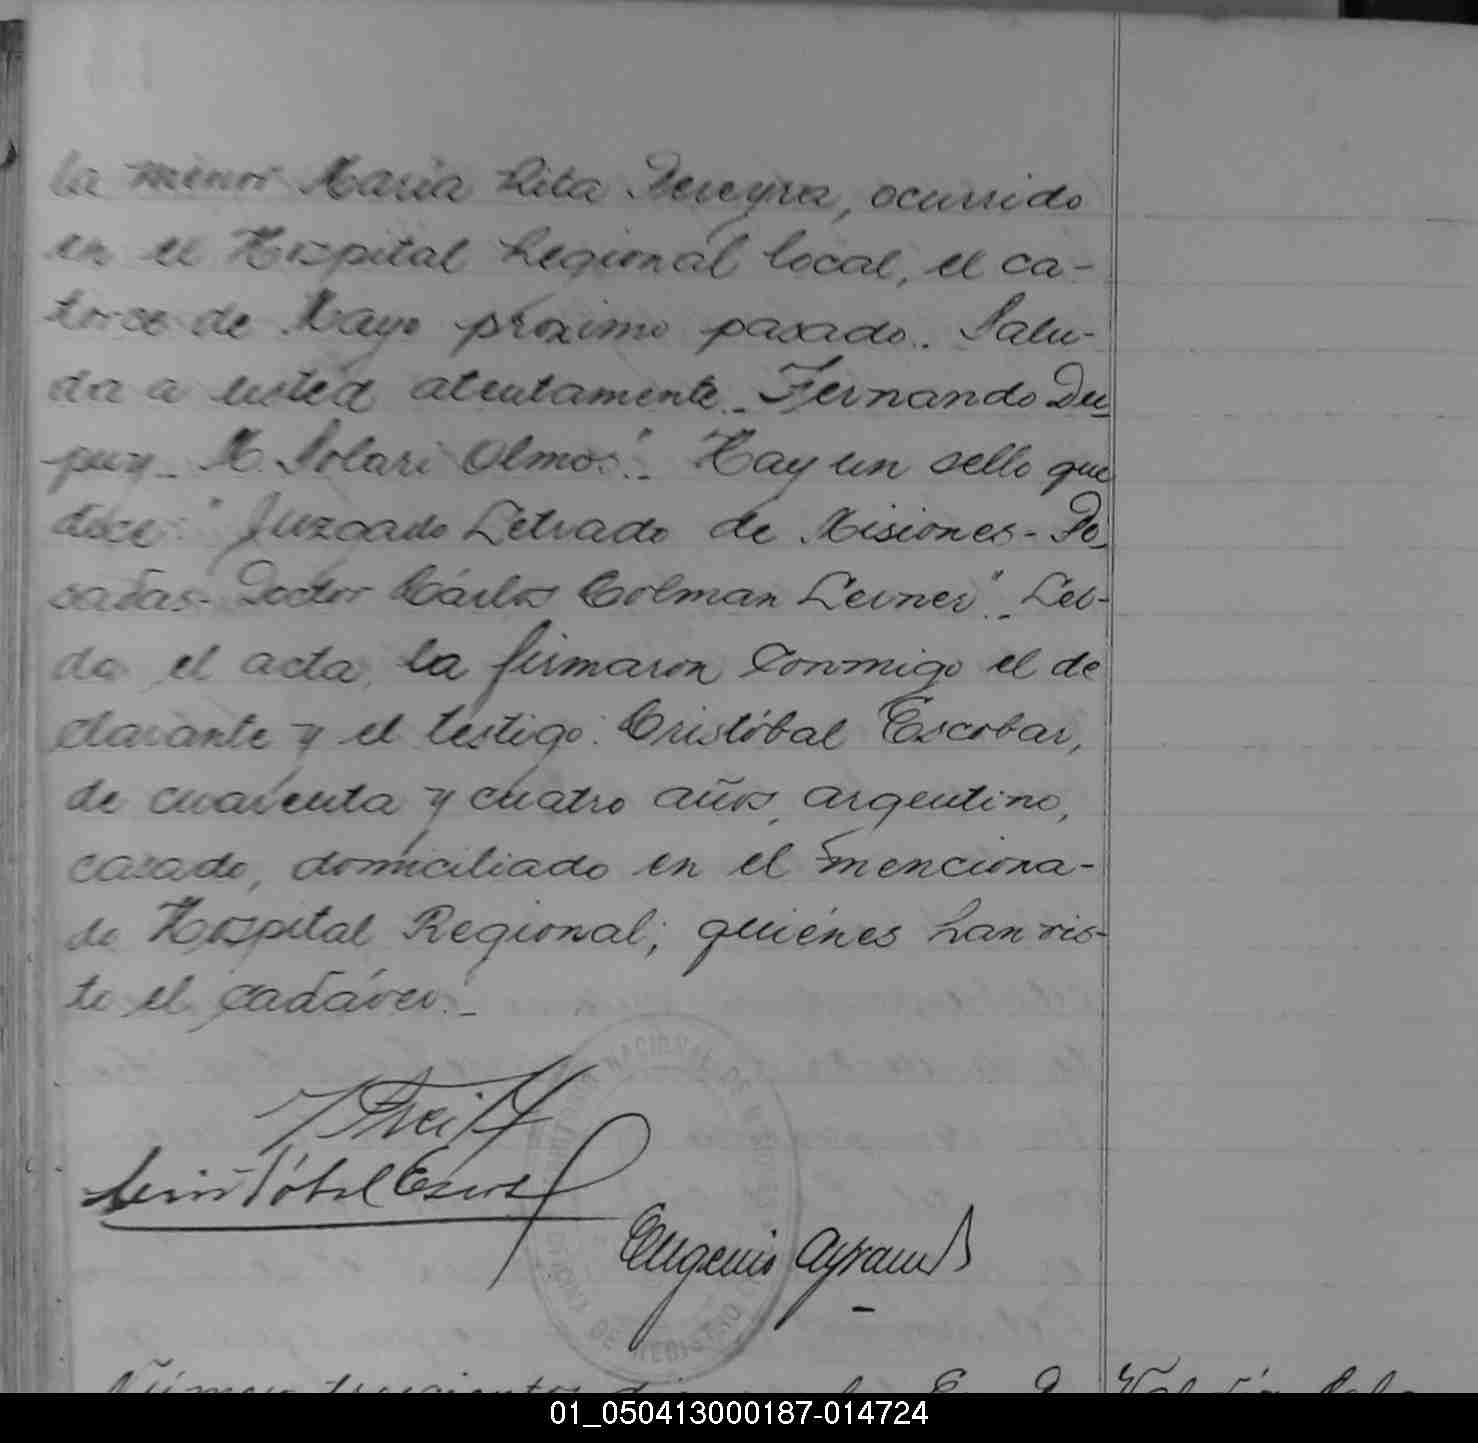 la menor Maria Rita Pereyra, ocurrido
en el Hospital Regional local, el ca-
torce de Mayo próximo pasado. Salu-
da a usted atentamente. Fernando Du-
puy - M. Solari Olmos".- Hay un sello que
dice: "Juzgado Letrado de Misiones - Po-
sadas - Doctor Cárlos Colman Lerner".- Leí-
da el acta, la firmaron conmigo el de
clarante y el testigo: Cristóbal Escobar,
de cuarenta y cuatro años, argentino,
casado, domiciliado en el menciona-
do Hospital Regional; quiénes han vis-
to el cadáver.-
Cristóbal Escob
Eugenio Ayraud
NACIONAL DE
DE REGISTRO
Número trescientos
01_050413000187-014724